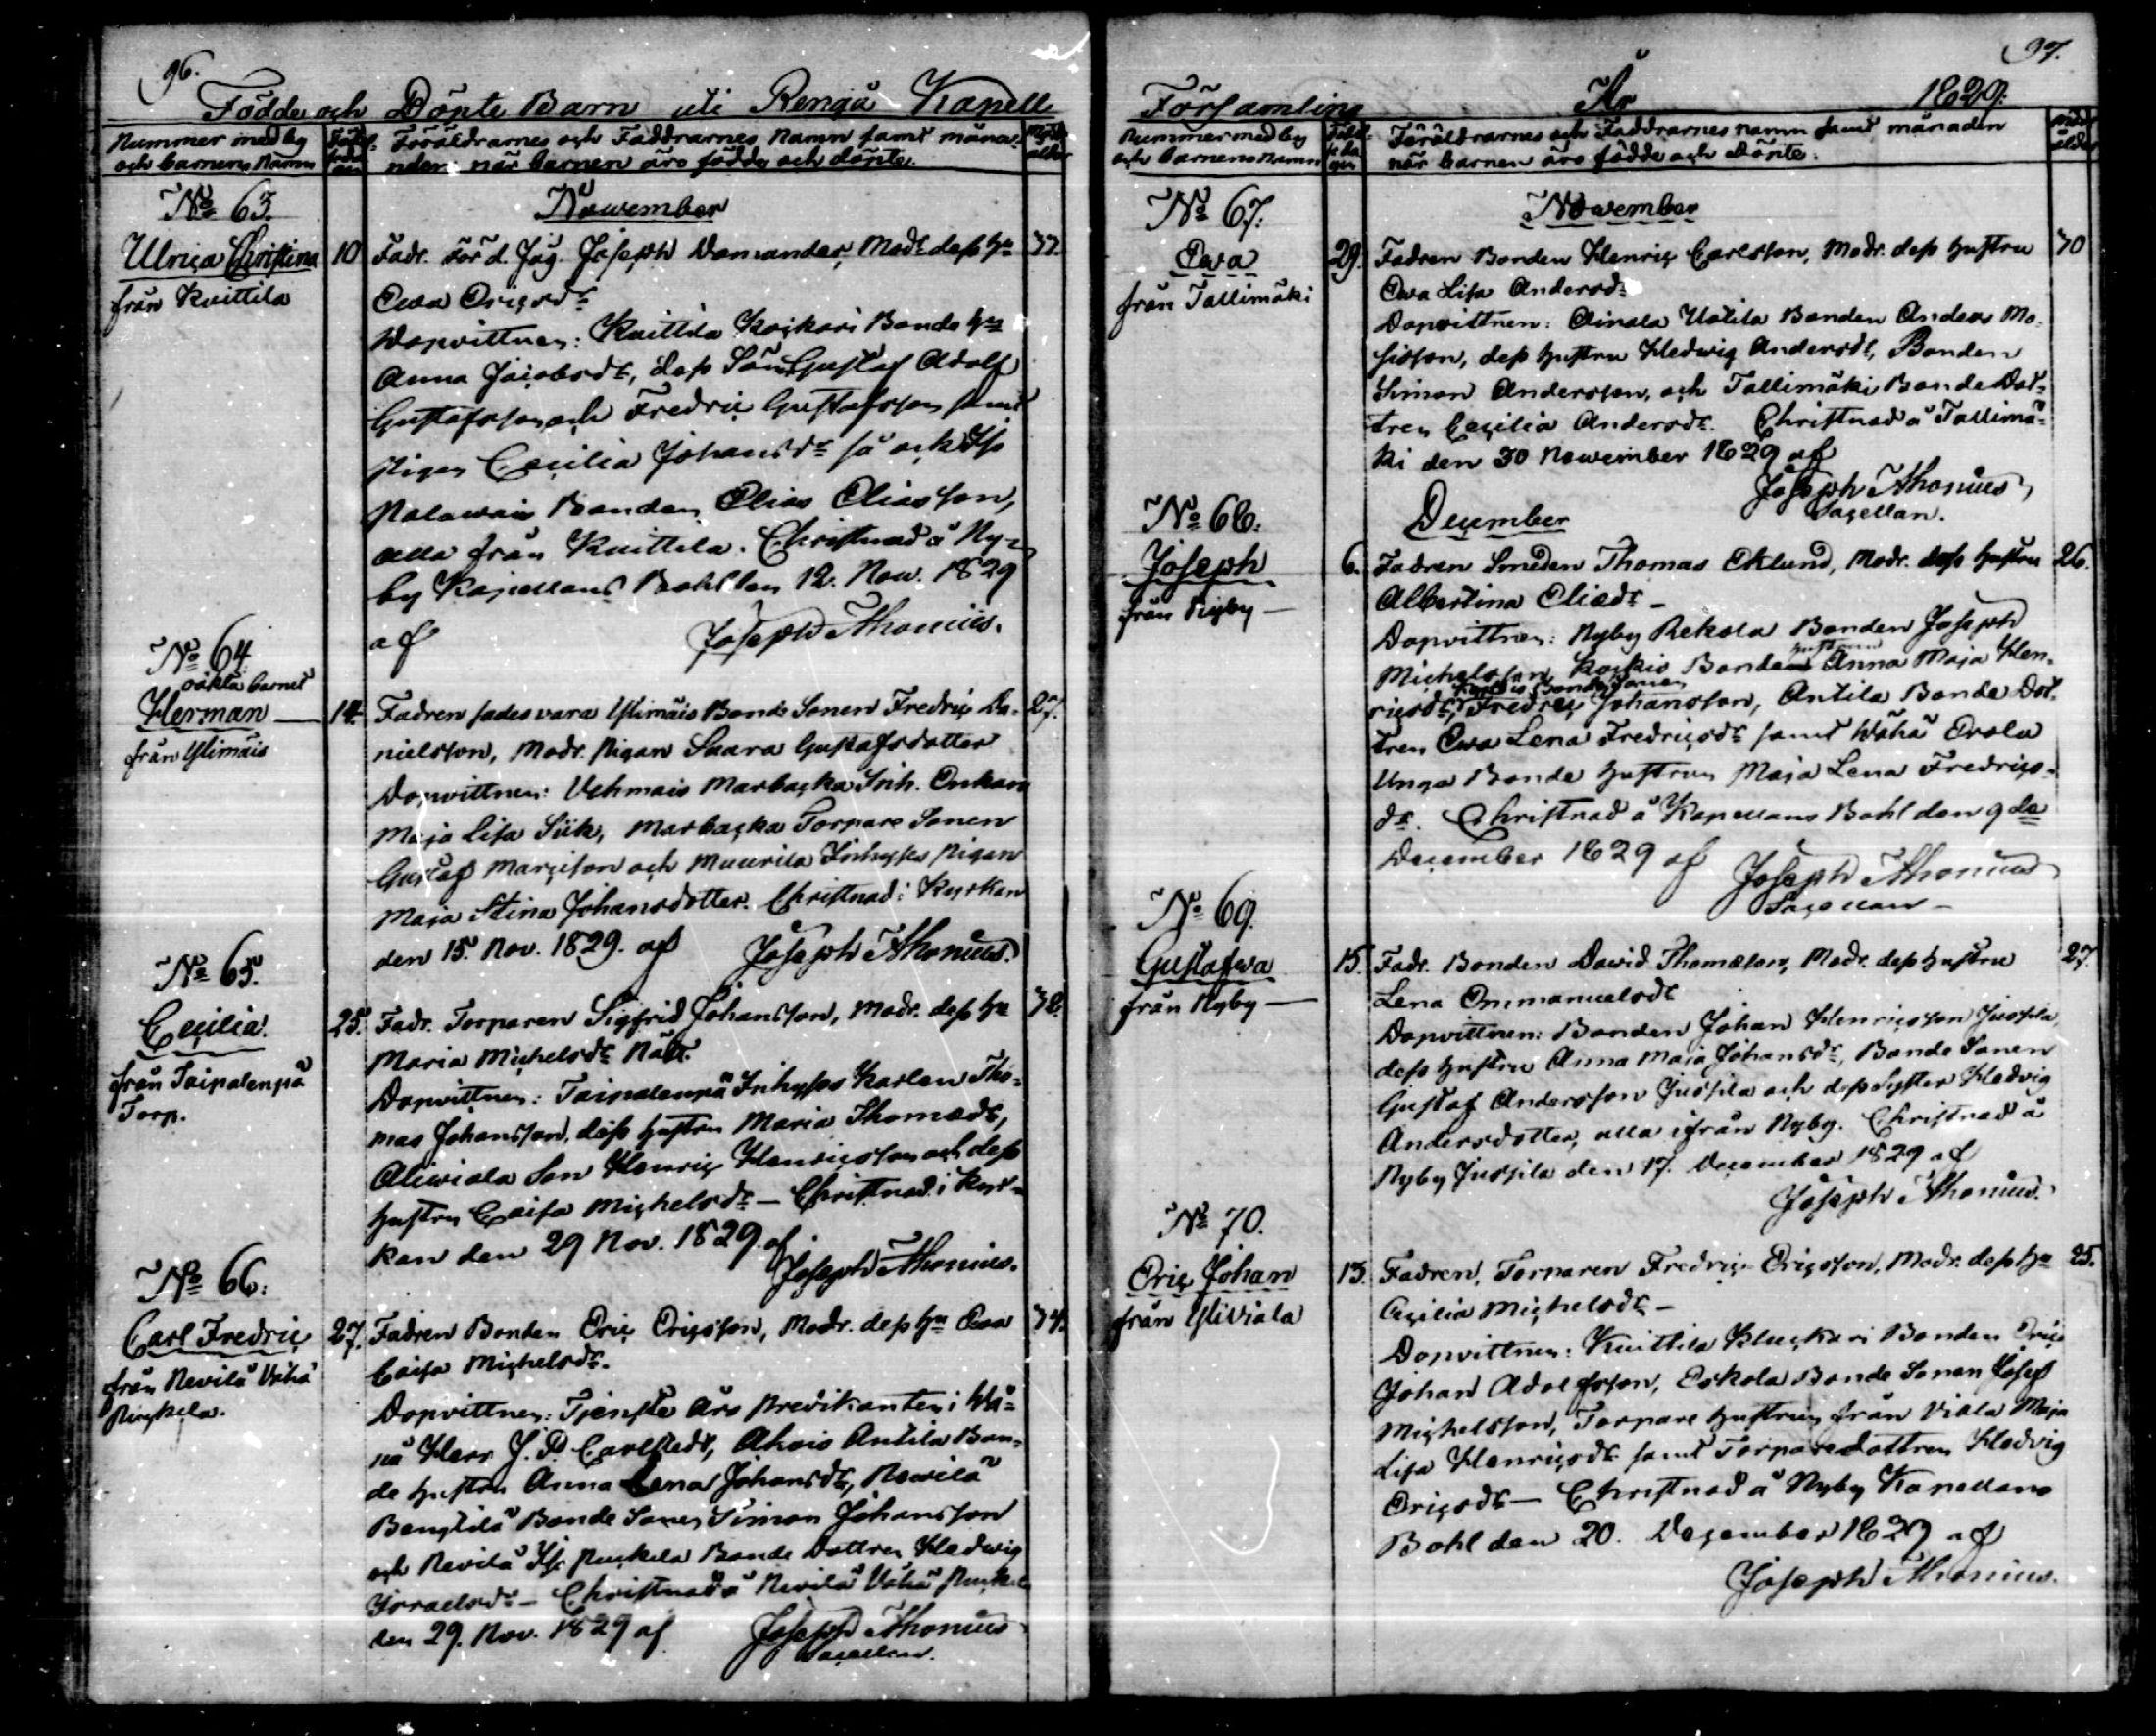 96.
Födde och Döpte Barn uti Rengå Kapell
Nummer med by och barnens Namn
Föräldrarnes och Faddrarnes Namn samt måna-
nden när barnen äro födde och döpte.
November
No 63.
Ulrica Christina
från Kuittila
10
Fadr. Förd. Jäg. Joseph Domander, Modr dess Hu 37.
Ewa Ericsdr
Dopvittnen: Kuittila Bonde Hu
Anna Jacobsdr, dess Son Gustaf Adolf
Gustafsson och Fredric Gustafsson samt
Pigan Cecilia Johansdr så ock
Bonden Elias Eliasson,
alla från Kuittila. Christnad å Ny-
by Kapellans Bohl den 12. Nov. 1829
af Joseph Thonius.
No 64
oäkta barnet
Herman
från Ylimäis
14
Fadren sades vara Ylimäis Bonde Sonen Fredric Da- 27.
nielsson, Modr. Pigan Saara Gustafsdotter
Dopvittnen: Vehmais Marbacka Inh. Enkan
Maja Lisa Siik, Marbacka Torpare Sonen
Gustaf och Muurila Inhyses Pigan
Maja Stina Johansdotter. Christnad i Kyrkan
den 15. Nov. 1829. af Joseph Thonius.
No 65.
Cecilia
från Taipalenpä
Torp.
25.
Fadr. Torparen Sigfrid Johansson, Modr. dess Hu 38.
Maria Michelsdr
Dopvittnen: Taipalenpä Inhyses Karlen Tho-
mas Johansson, dess Hustru Maria Thomædr,
Son Henric Henricsson och dess
Hustru Caisa Michelsdr – Christnad i Kyr-
kan den 29 Nov. 1829. af
Joseph Thonius.
No 66.
Carl Fredric
från Nevilä Vähä
27.
Fadren Bonden Eric Ericsson, Modr. dess Hu Ewa 34.
Caisa Michelsdr.
Dopvittnen: Tjenste års Predikanten i
Herr J. P. Carlstedt, Ahois Antila Bon-
de Hustru Anna Lena Johansdr, Newilä
Bengtilä Bonde Sonen Simon Johansson
och Nevilä Bonde Dottren Hedvig
Israelsdr – Christnad å Nevilä Vähä
den 29. Nov. 1829 af Joseph Thonius
Sacellan.
97.
Församling År 1829.
Nummer med by och barnens Namn
Föräldrarnes och Faddrarnes namn samt månaden
när barnen äro födde och Döpte.
November
No 67.
Ewa
från Tallimäki
29.
Fadren Bonden Henric Carlsson, Modr. dess Hustru 30
Ewa Lisa Andersdr
Dopvittnen: Ainala Uotila Bonden Anders Mo-
sisson, dess Hustru Hedwig Andersdr, Bonden
Simon Andersson, och Tallimäki Bonde Dot-
tren Cecilia Andersdr. Christnad å Tallimä-
ki den 30 November 1829 af
Joseph Thonius,
Sacellan.
December
No 68.
Joseph
från Nyby –
6.
Fadren Smeden Thomas Eklund, Modr. dess Hustru 26.
Albertina Eliædr –
Dopvittnen: Nyby Rekola Bonden Joseph
Michelsson, Bonde Hustrun Anna Maja Hen-
ricsdr, Bonde Sonen Fredric Johansson, Antila Bonde Dot-
tren Ewa Lena Fredricsdr samt Wähä Erola
Unga Bonde Hustrun Maja Lena Fredrics-
dr. Christnad å Kapellans Bohl den 9de
December 1829 af Joseph Thonius
Sacellan –
No 69.
Gustafwa
från Nyby –
15.
Fadr. Bonden David Thomæson, Modr. dess Hustru 27.
Lena Emmanuelsdr
Dopvittnen: Bonden Johan Henricsson Jussila,
dess Hustru Anna Maja Johansdr, Bonde Sonen
Gustaf Andersson Jussila och dess Syster Hedvig
Andersdotter, alla ifrån Nyby. Christnad å
Nyby Jussila den 17. December 1829 af
Joseph Thonius.
No 70.
Eric Johan
från Yliviala
13.
Fadren, Torparen Fredric Ericsson, Modr. dess Hu 25.
Cecilia Michelsdr –
Dopvittnen: Kuittila Bonden Eric
Johan Adolfsson, Eskola Bonde Sonen Josef
Michelsson, Torpare Hustrun från Viala Maja
Lisa Henricsdr samt Torpare dottren Hedvig
Ericsdr – Christnad å Nyby Kapellans
Bohl den 20. December 1829 af
Joseph Thonius.